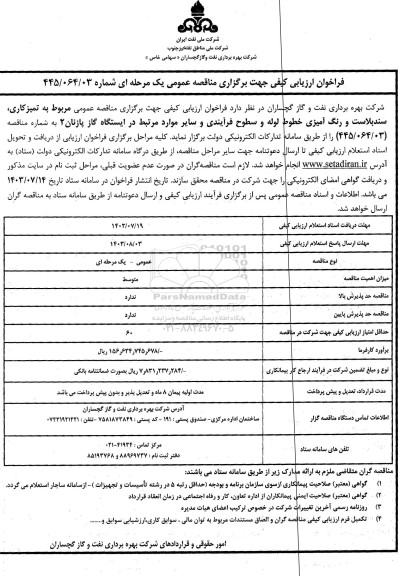 شرکت ملی نفت ایران
شرکت ملی مناطق نفتخیز جنوب
شرکت بهره برداری نفت و گاز گچساران « سهامی خاص »
فراخوان ارزیابی کیفی جهت برگزاری مناقصه عمومی یک مرحله ای شماره ۴۴۵/۰۶۴/۰۳
شرکت بهره برداری نفت و گاز گچساران در نظر دارد فراخوان ارزیابی کیفی جهت برگزاری مناقصه عمومی مربوط به تمیزکاری،
سندبلاست و رنگ آمیزی خطوط لوله و سطوح فرآیندی و سایر موارد مرتبط در ایستگاه گاز پازنان۲ به شماره مناقصه
(۴۴۵/۰۶۴/۰۳) را از طریق سامانه تدارکات الکترونیکی دولت برگزار نماید. کلیه مراحل برگزاری فراخوان ارزیابی از دریافت و تحویل
اسناد استعلام ارزیابی کیفی تا ارسال دعوتنامه جهت سایر مراحل مناقصه، از طریق درگاه سامانه تدارکات الکترونیکی دولت (ستاد) به
آدرس www.setadiran.ir انجام خواهد شد. لازم است مناقصه‌گران در صورت عدم عضویت قبلی، مراحل ثبت نام در سایت مذکور
و دریافت گواهی امضای الکترونیکی را جهت شرکت در مناقصه محقق سازند. تاریخ انتشار فراخوان در سامانه ستاد تاریخ ۱۴۰۳/۰۷/۱۴
می باشد. اطلاعات و اسناد مناقصه عمومی پس از برگزاری فرآیند ارزیابی کیفی و ارسال دعوتنامه از طریق سامانه ستاد به مناقصه گران
ارسال خواهد شد.
مهلت دریافت اسناد استعلام ارزیابی کیفی ۱۴۰۳/۰۷/۱۹
مهلت ارسال پاسخ استعلام ارزیابی کیفی ۱۴۰۳/۰۸/۰۳
نوع مناقصه عمومی - یک مرحله ای
میزان اهمیت مناقصه متوسط
مناقصه حد پذیرش بالا ندارد
مناقصه حد پذیرش پایین ندارد
حداقل امتیاز ارزیابی کیفی جهت شرکت در مناقصه ۶۰
برآورد کارفرما ۱۵۶,۶۳۴,۷۴۵,۶۷۸/- ریال
نوع و مبلغ تضمین شرکت در فرآیند ارجاع کار پیمانکاری ۷,۸۳۱,۷۳۷,۲۸۴/- ریال بصورت ضمانتنامه بانکی
مدت قرارداد، تعدیل و پیش پرداخت مدت اولیه پیمان ۸ ماه و تعدیل پذیر و بدون پیش پرداخت می باشد
اطلاعات تماس دستگاه مناقصه گزار آدرس شرکت بهره برداری نفت و گاز گچساران
ساختمان اداره مرکزی- صندوق پستی : ۱۹۱ - کد پستی : ۷۵۸۱۸۷۳۸۴۹ -تلفن :
تلفن های سامانه ستاد مرکز تماس : ۴۱۹۳۴-۰۲۱
دفتر ثبت نام : ۸۸۹۶۹۷۳۷ و ۸۵۱۹۳۷۶۸
مناقصه گران متقاضی ملزم به ارائه مدارک زیر از طریق سامانه ستاد می باشند:
۱) گواهی (معتبر) صلاحیت پیمانکاری ازسوی سازمان برنامه و بودجه (حداقل رتبه ۵ در رشته تأسیسات و تجهیزات ) - ازسامانه ساجار استعلام می گردد.
۲) گواهی (معتبر) صلاحیت ایمنی پیمانکاران از اداره تعاون، کار و رفاه اجتماعی در زمان انعقاد قرارداد
۳) روزنامه رسمی آخرین تغییرات شرکت در خصوص ترکیب اعضای هیات مدیره
۴) تکمیل فرم ارزیابی کیفی مناقصه گران و الصاق مستندات مربوط به توان مالی ، سوابق کاری،ارزشیابی سوابق و.....
امور حقوقی و قراردادهای شرکت بهره برداری نفت و گاز گچساران
ParsNamadData
پایگاه اطلاع رسانی مناقصه و مزایده
۰۲۱-۸۸۳۴۹۶۷۰-۵